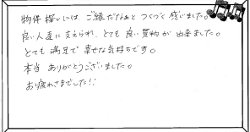 物件探しには ご縁だなぁと つくづく 感じました。
良い人達に 支えられ、とても 良い買物が 出来ました。
とても 満足で 幸せな気持ちです。
本当 ありがとうございました。
お疲れさまでした!!